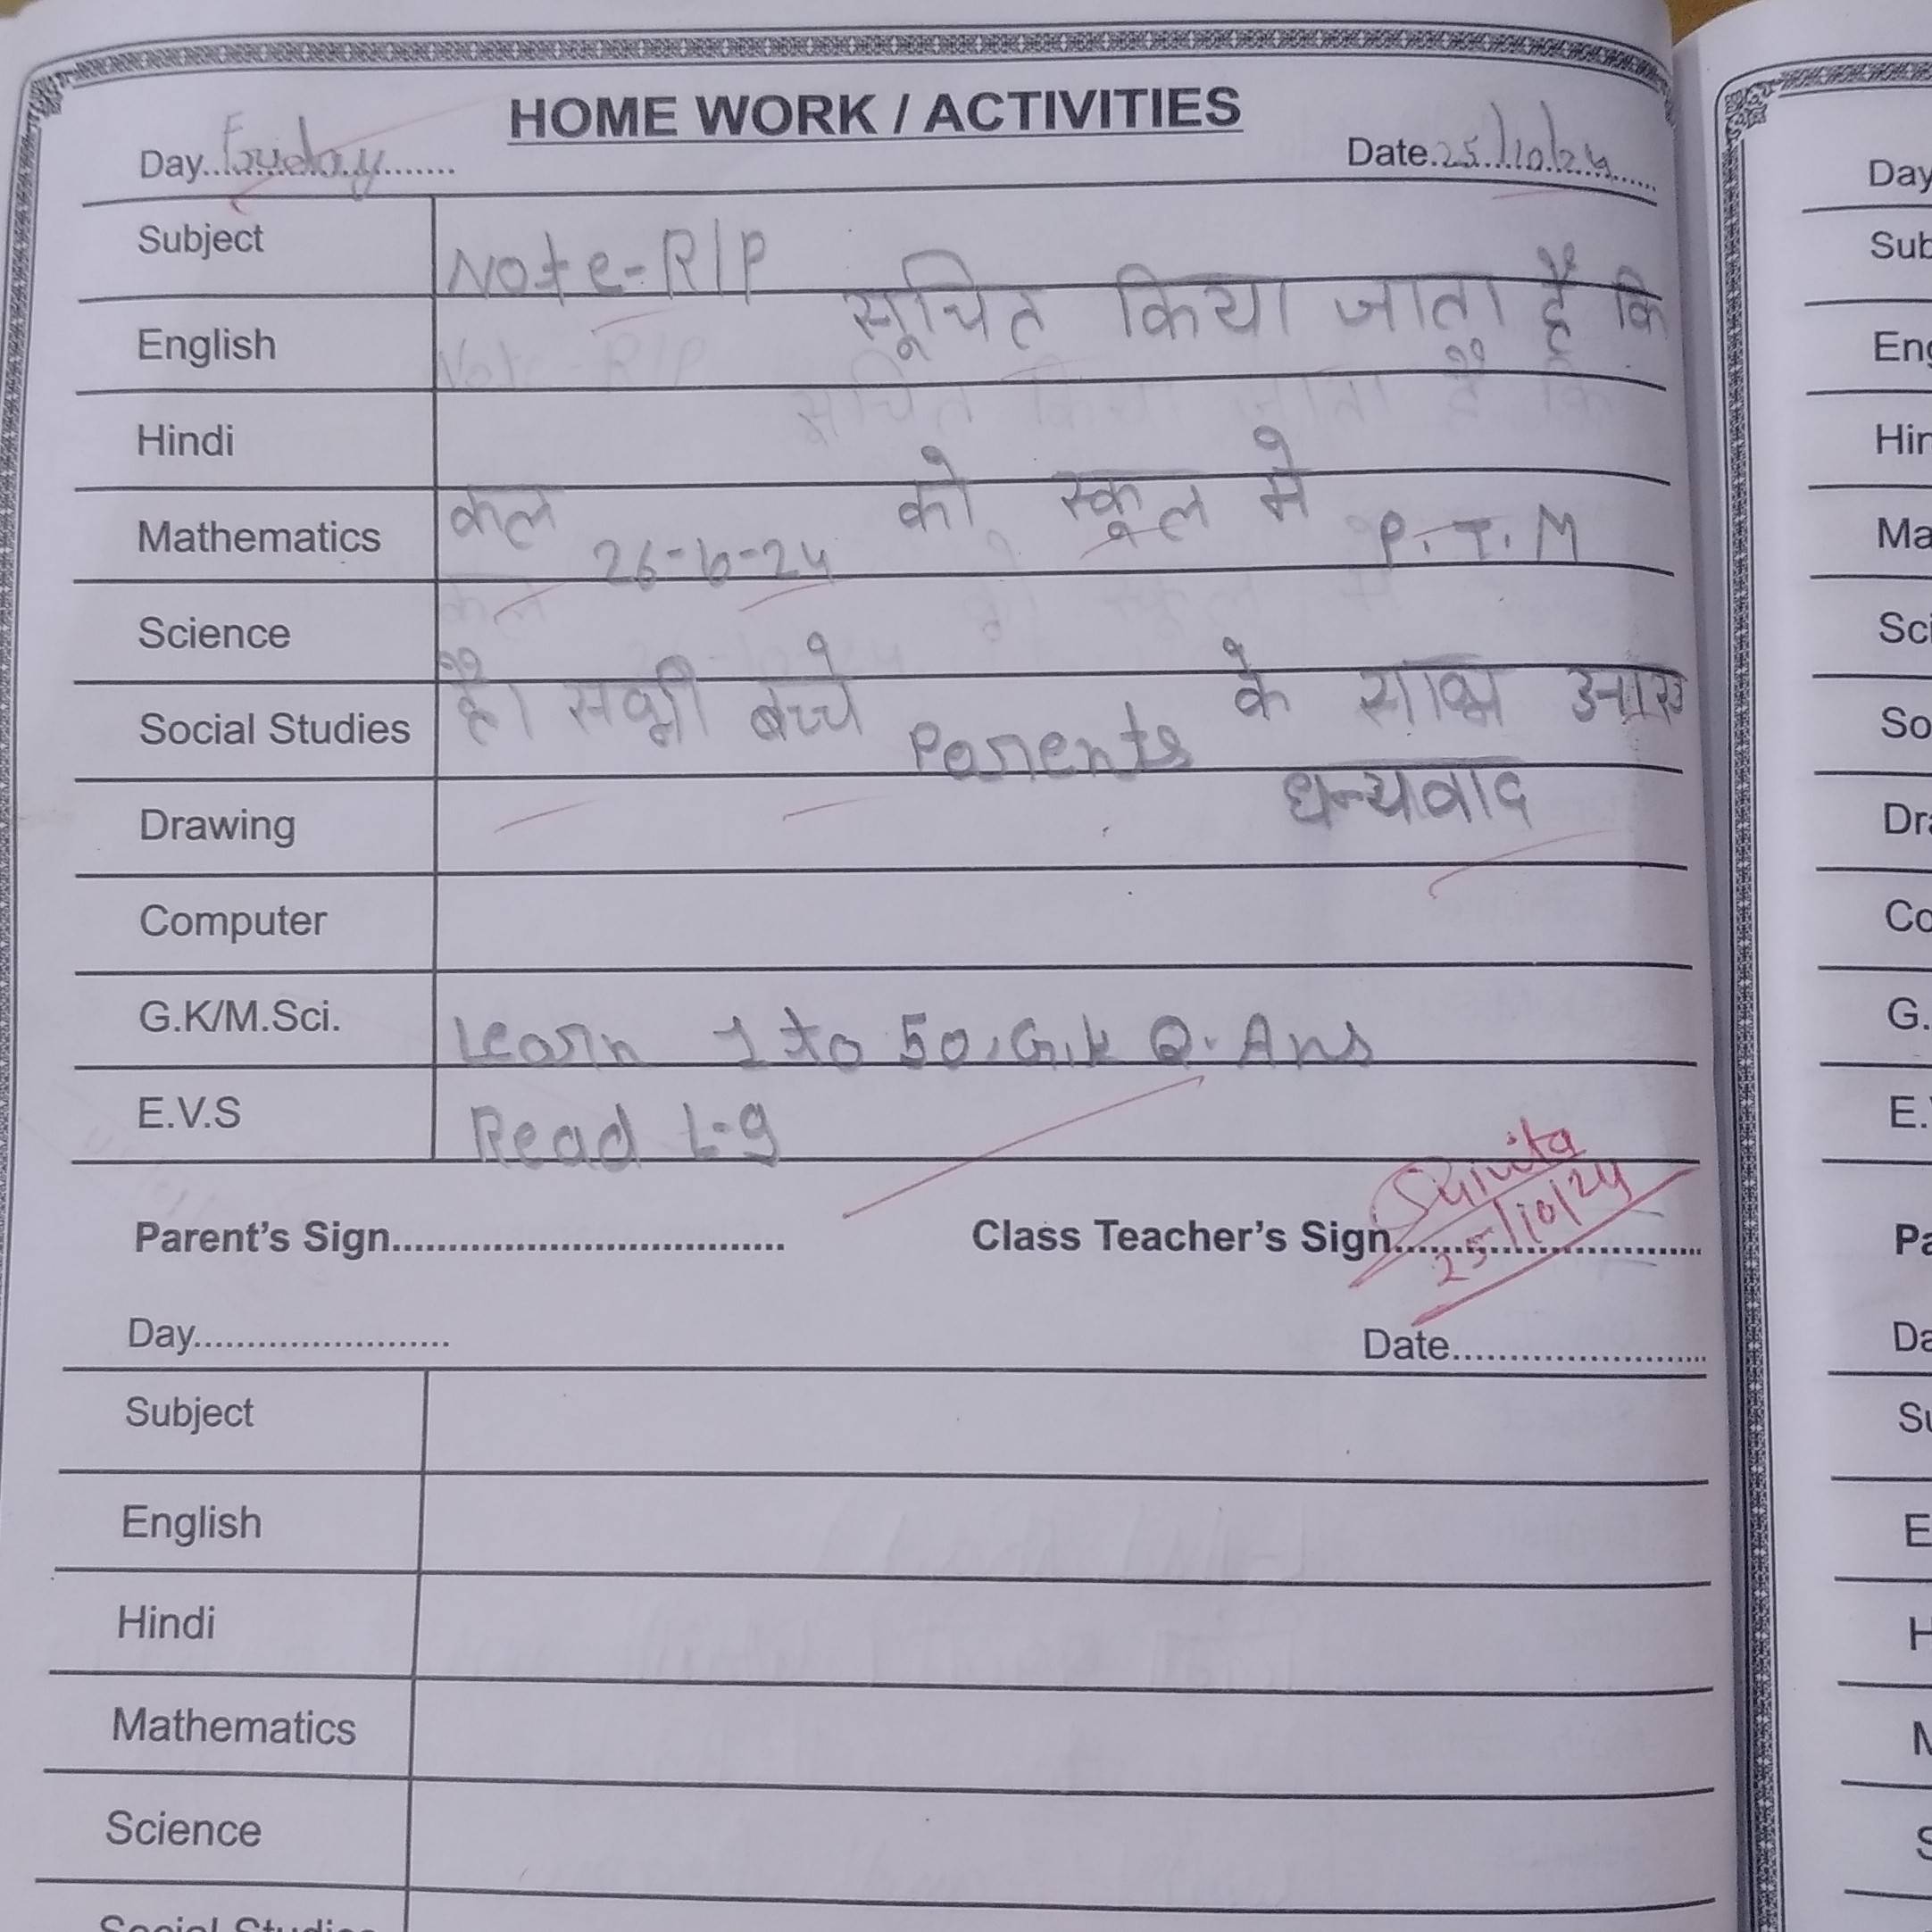 HOME WORK / ACTIVITIES
Day..Friday........ Date.25/10/24.....
Subject Note-R/P सूचित किया जाता है कि
English
Hindi
Mathematics कल 26-10-24 को स्कूल मे P.T.M
Science
Social Studies है। सभी बच्चे Parents के साथ आए
Drawing धन्यवाद
Computer
G.K/M.Sci. Learn 1 to 50.G.k Q.Ans
E.V.S Read L-9
Parent's Sign................................... Class Teacher's Sign...........................
25/10/24
Day........................ Date........................
Subject
English
Hindi
Mathematics
Science
Social Studies
Day
Sub
Eng
Hin
Ma
Sci
So
Dra
Co
G.
E.
Pa
Da
Su
E
H
M
S